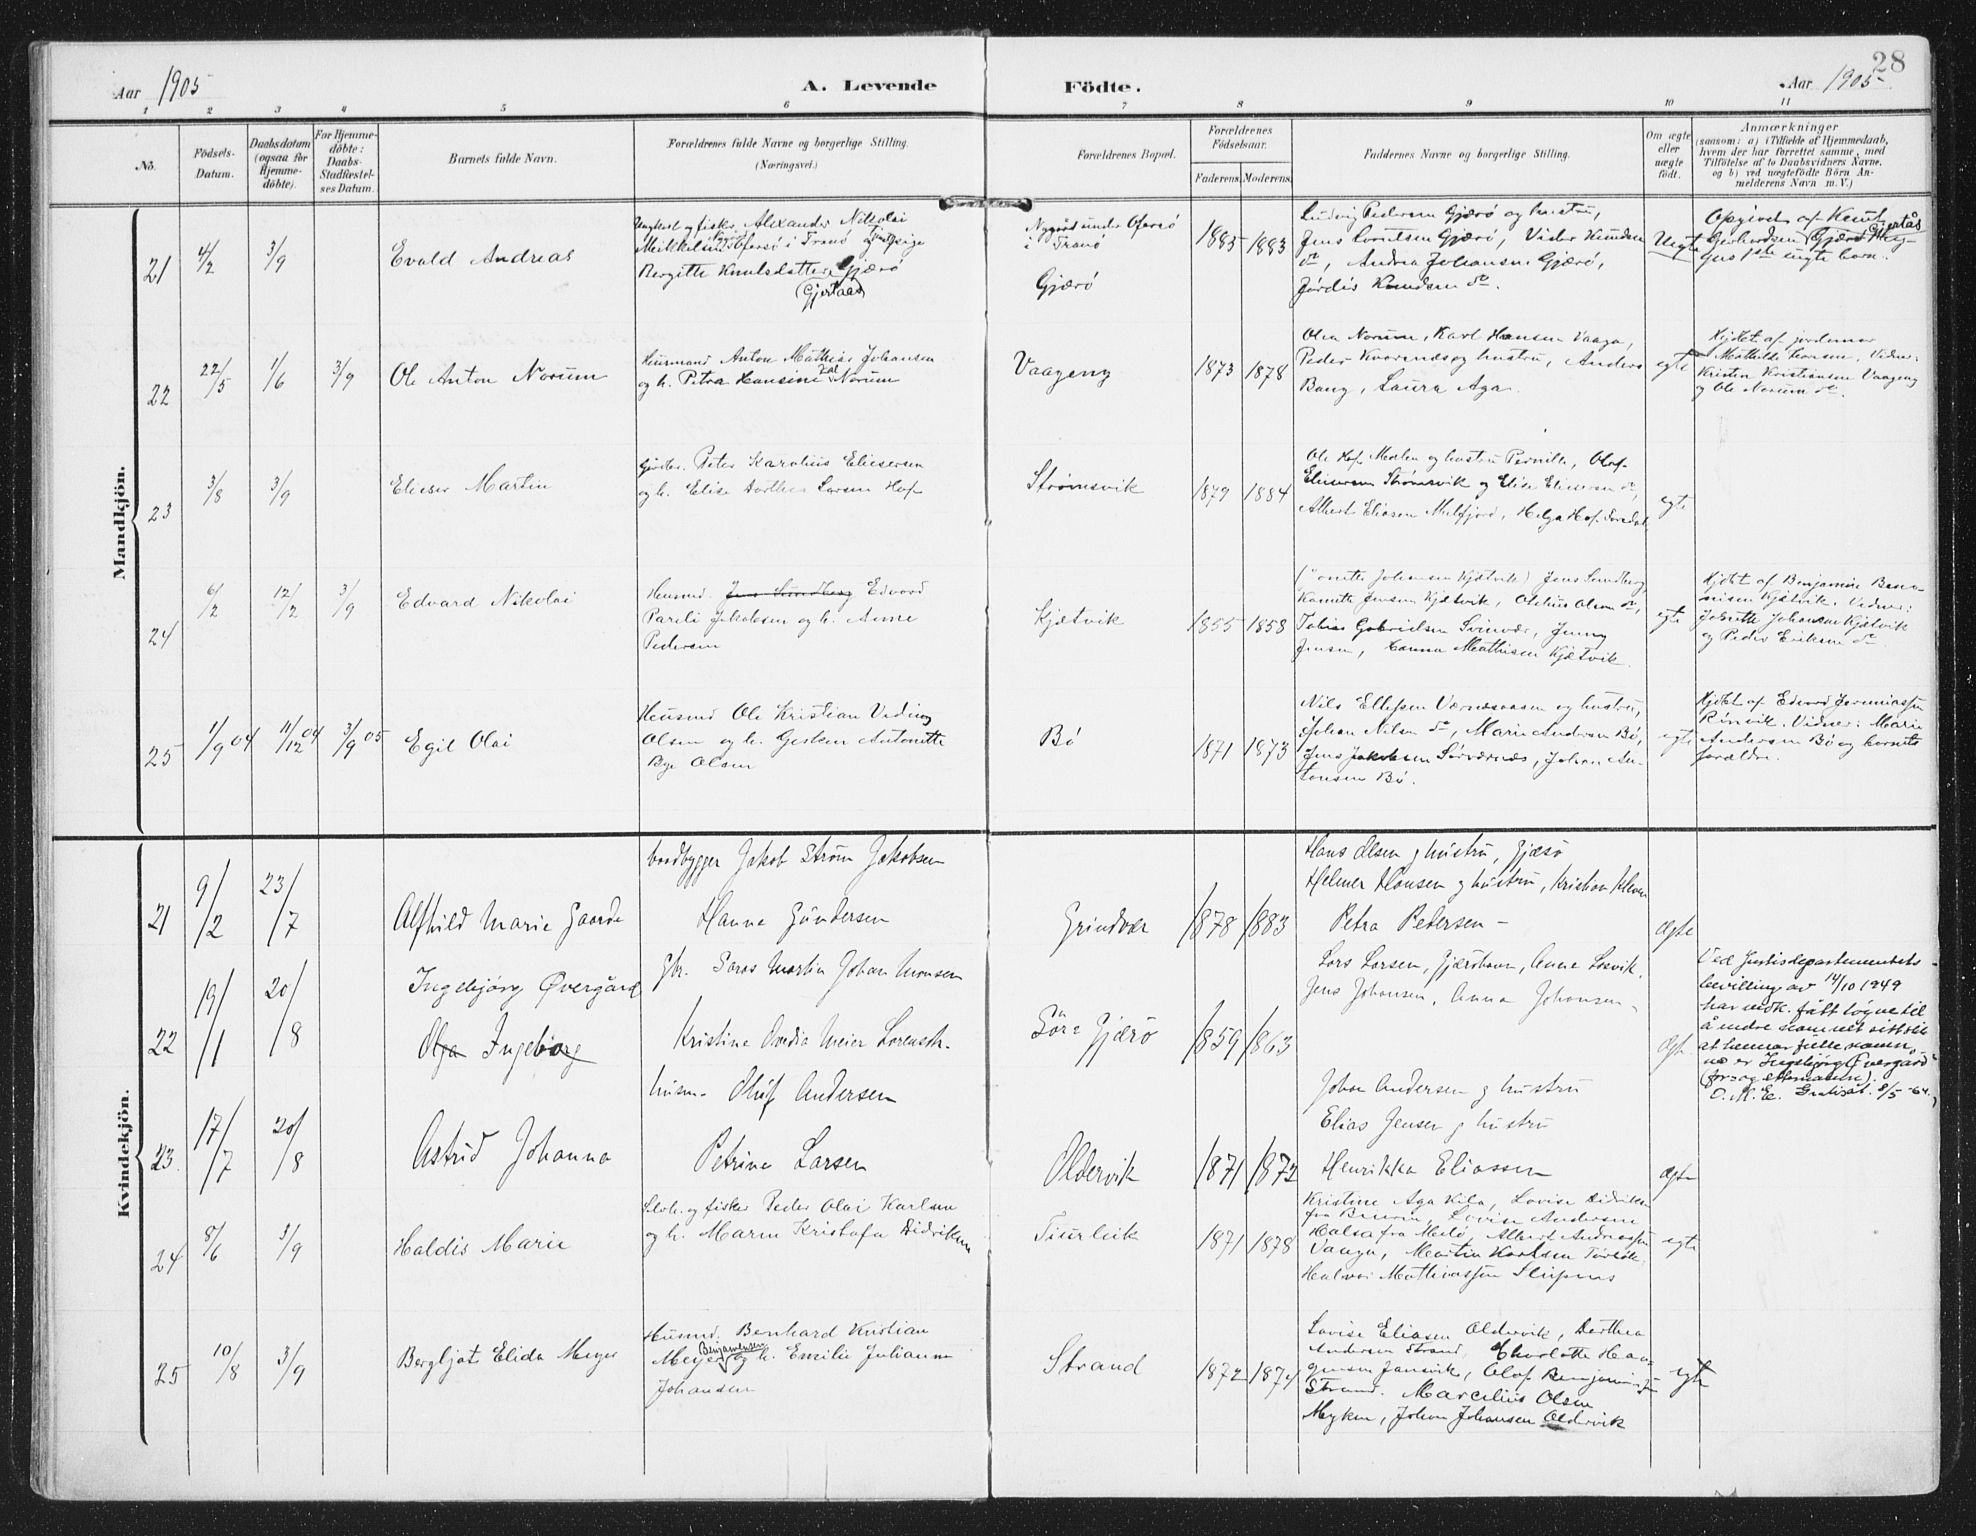 28
Aar 1905
A. Levende
Födte.
Aar 1905
1 2 3 4 5 6 7 8 9 10 11
No.
Födsels-
Datum.
Daabsdatum
(ogsaa for
Hjemme-
döbte).
For Hjemme-
döbte:
Daabs-
Stadfæstel-
ses Datum.
Barnets fulde Navn.
Forældrenes fulde Navne og borgerlige Stilling.
(Næringsvei.)
Forældrenes Bopæl.
Forældrenes
Födselsaar.
Faderens. Moderens.
Faddernes Navne og borgerlige Stilling.
Om ægte
eller
uægte
födt.
Anmærkninger
(saasom: a) i Tilfælde af Hjemmedaab,
hvem der har forrettet samme, med
Tilföielse af to Daabsvidners Navne,
og b) ved uægtefödte Börn An-
melderens Navn m. V.)
Mandkjön.
21
4/2
3/9
Evald Andreas
Ungkarl og fisker Alexander Nikolai
Mikkelsen Oførsø i Tranø og pige
Bergitte Knutsdatter Gjærø
(Gjertaas)
Nygård under Oførsø
i Tranø
Gjærø
1885 1883
Ludvig Pedersen Gjærø og hustru,
Jens Gjærø, Vider Knudsen
do, Andrea Johansen Gjærø,
Jördis Knudsen do.
Uegte
Opgivet af Knut
Gerhardsen Gjertås
1ste uegte barn.
22
22/5
1/6
3/9
Ole Anton Norum
Husmand Anton Mathias Johansen
og h. Petra Hansine Norum
Vaageng
1873 1878
Olea Norum, Karl Hansen Vaaga,
Peder Kvarenes og hustru, Anders
Bang, Laura Aga.
egte
Hjdøbt af jordemor
Mathilde Hansen. Vidner:
Kristen Kristiansen Vaageng
og Ole Norum do.
23
3/8
3/9
Elieser Martin
Peter Karolius Eliesersen
og h. Elise Dorthea Larsen Hof
Strømsvik
1879 1884
Ole Hof Melen og hustru Pernille, Olaf
Eliesersen Strømsvik og Elise Eliesersen do,
Albert Eliasen Melfjord, Helga Hof
egte
24
6/2
12/2
3/9
Edvard Nikolai
Husmd. Jens Sundberg Edvard
Pareli Jakobsen og h. Anne
Pedersen
Kjætvik
1855 1858
Johansen Kjætvik) Jens Sundberg,
Jensen Kjætvik, Oletius Olsen do,
Tobias Gabrielsen Svinvær, Jenny
Jensen, Hanna Mathisen Kjætvik.
egte
Hjdøbt af Benjamine Bena-
nisen Kjætvik. Vidner:
Johansen Kjætvik
og Peder Eriksen do
25
1/9 04
11/12 04
3/9 05
Egil Olai
Husmd Ole Kristian Veding
Olsen og h. Gesken Antonette
Bye Olsen
Bø
1871 1873
Nils Ellefsen Værnesaasen og hustru,
Johan Nilsen do, Marie Andersen Bø,
Jens Jakobsen Sørværnæs, Johan An-
tonsen Bø.
egte
Hjdøbt af Edvard Jeremiassen
Rönvik. Vidner: Marie
Andersen Bø og barnets
forældre.
Kvindekjön.
21
9/2
23/7
Alfhild Marie Gaarde
baadbygger Jakob Strøm Jakobsen
Hanna Gundersen
Grindvær
1878 1883
Hans Olsen g hustru, Gjæsø
Helmer Hansen g hustru, Kristian
Petra Petersen -
ægte
22
19/1
20/8
Ingebjørg Øvergård
Olga Ingeborg
Gbr. Martin Johan Monsen
Kristine Ovedia Meier Lorensdtr.
Søre Gjærø
1859 1863
Lars Larsen, Gjærshavn, Anne Losvik.
Jens Johansen, Anna Johansen -
ægte
Ved Justisdepartementets
bevilling av 14/10 1949
har indk. fått løyve til
å endre namnet sitt slik
at hennar fulle namn
no er Ingebjørg Øvergård
(forsog etternamn).
O.M.E. Gratisat. 8/5-64.
23.
17/7
20/8
Astrid Johanna
husm. Oluf Andersen
Petrine Larsen
Oldervik
1871 1872
Johan Andersen g hustru
Elias Jensen g hustru
Henrikka Eliassen
ægte
24
8/6
3/9
Haldis Marie
Selv. og fisker Peder Olai Karlsen
og h. Maren Kristofa Didriksen
1871 1878
Kristine Aga Kila, Lovise Didriksen
fra Lovise Andersen
Halsa fra Melø, Albert Andreassen
Vaaga, Martin Karlsen
Halvor Mathiassen
egte
25
10/8
3/9
Bergljot Elida Meyer
Husmd. Benhard Kristian
Benjaminsen
Meyer og h. Emilie Julianne
Johansen
Strand
1872 1874
Lovise Eliasen Oldervik, Derthea
Andersen Strand, Charlotte Haa-
gensen Jansvik, Olaf Benjaminsen
Strand. Marcelius Olsen
Myken, Johan Johansen Oldervik
egte